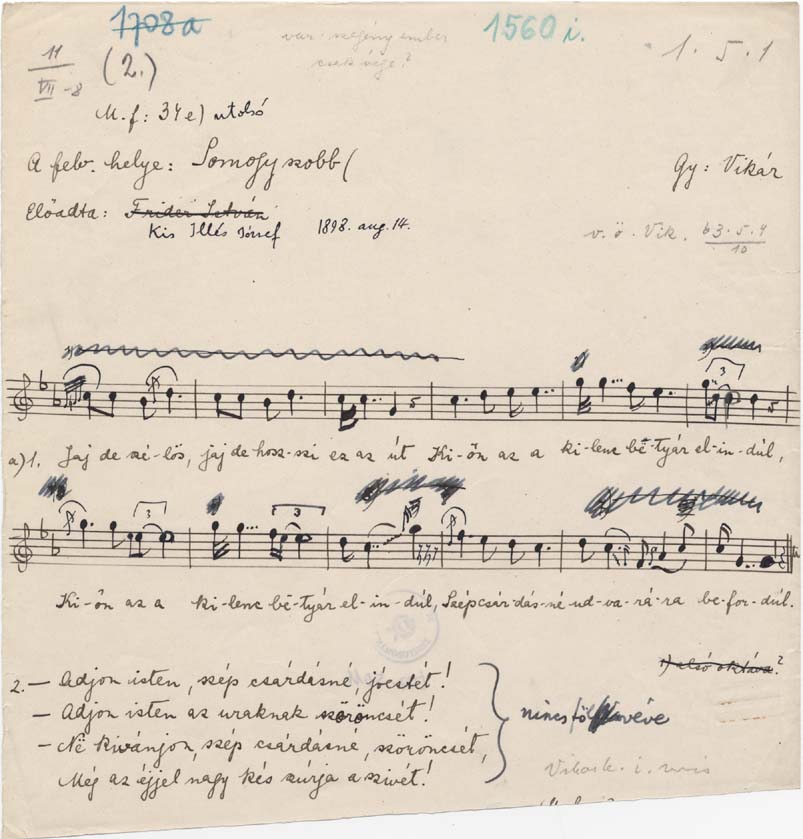 1708a
1560 i.
var. szegény ember
csak vége?
1. 5. 1
11
VII -8
(2.)
M.f: 34e) utolsó
A felv. helye: Somogyszobb (
Gy: Vikár
Előadta: Frider István
Kis Illés József 1898. aug. 14.
v. ö. Vik. 63.5.4
10
3
a) 1. Jaj de szé-lös, jaj de hosz-szi ez az út Ki-ön az a ki-lenc bë-tyár el-in-dúl,
3 3
Ki-ön az a ki-lenc bë-tyár el-in-dúl, Szép csár-dás-né ud-va-rá-ra be-for-dúl.
1) alsó oktáva?
2. — Adjon isten, szép csárdásné, jóestét!
— Adjon isten az uraknak szöröncsét!
— Në kivánjon, szép csárdásné, szöröncsét,
Még az éjjel nagy kés szúrja a szivét!
nincs föl véve